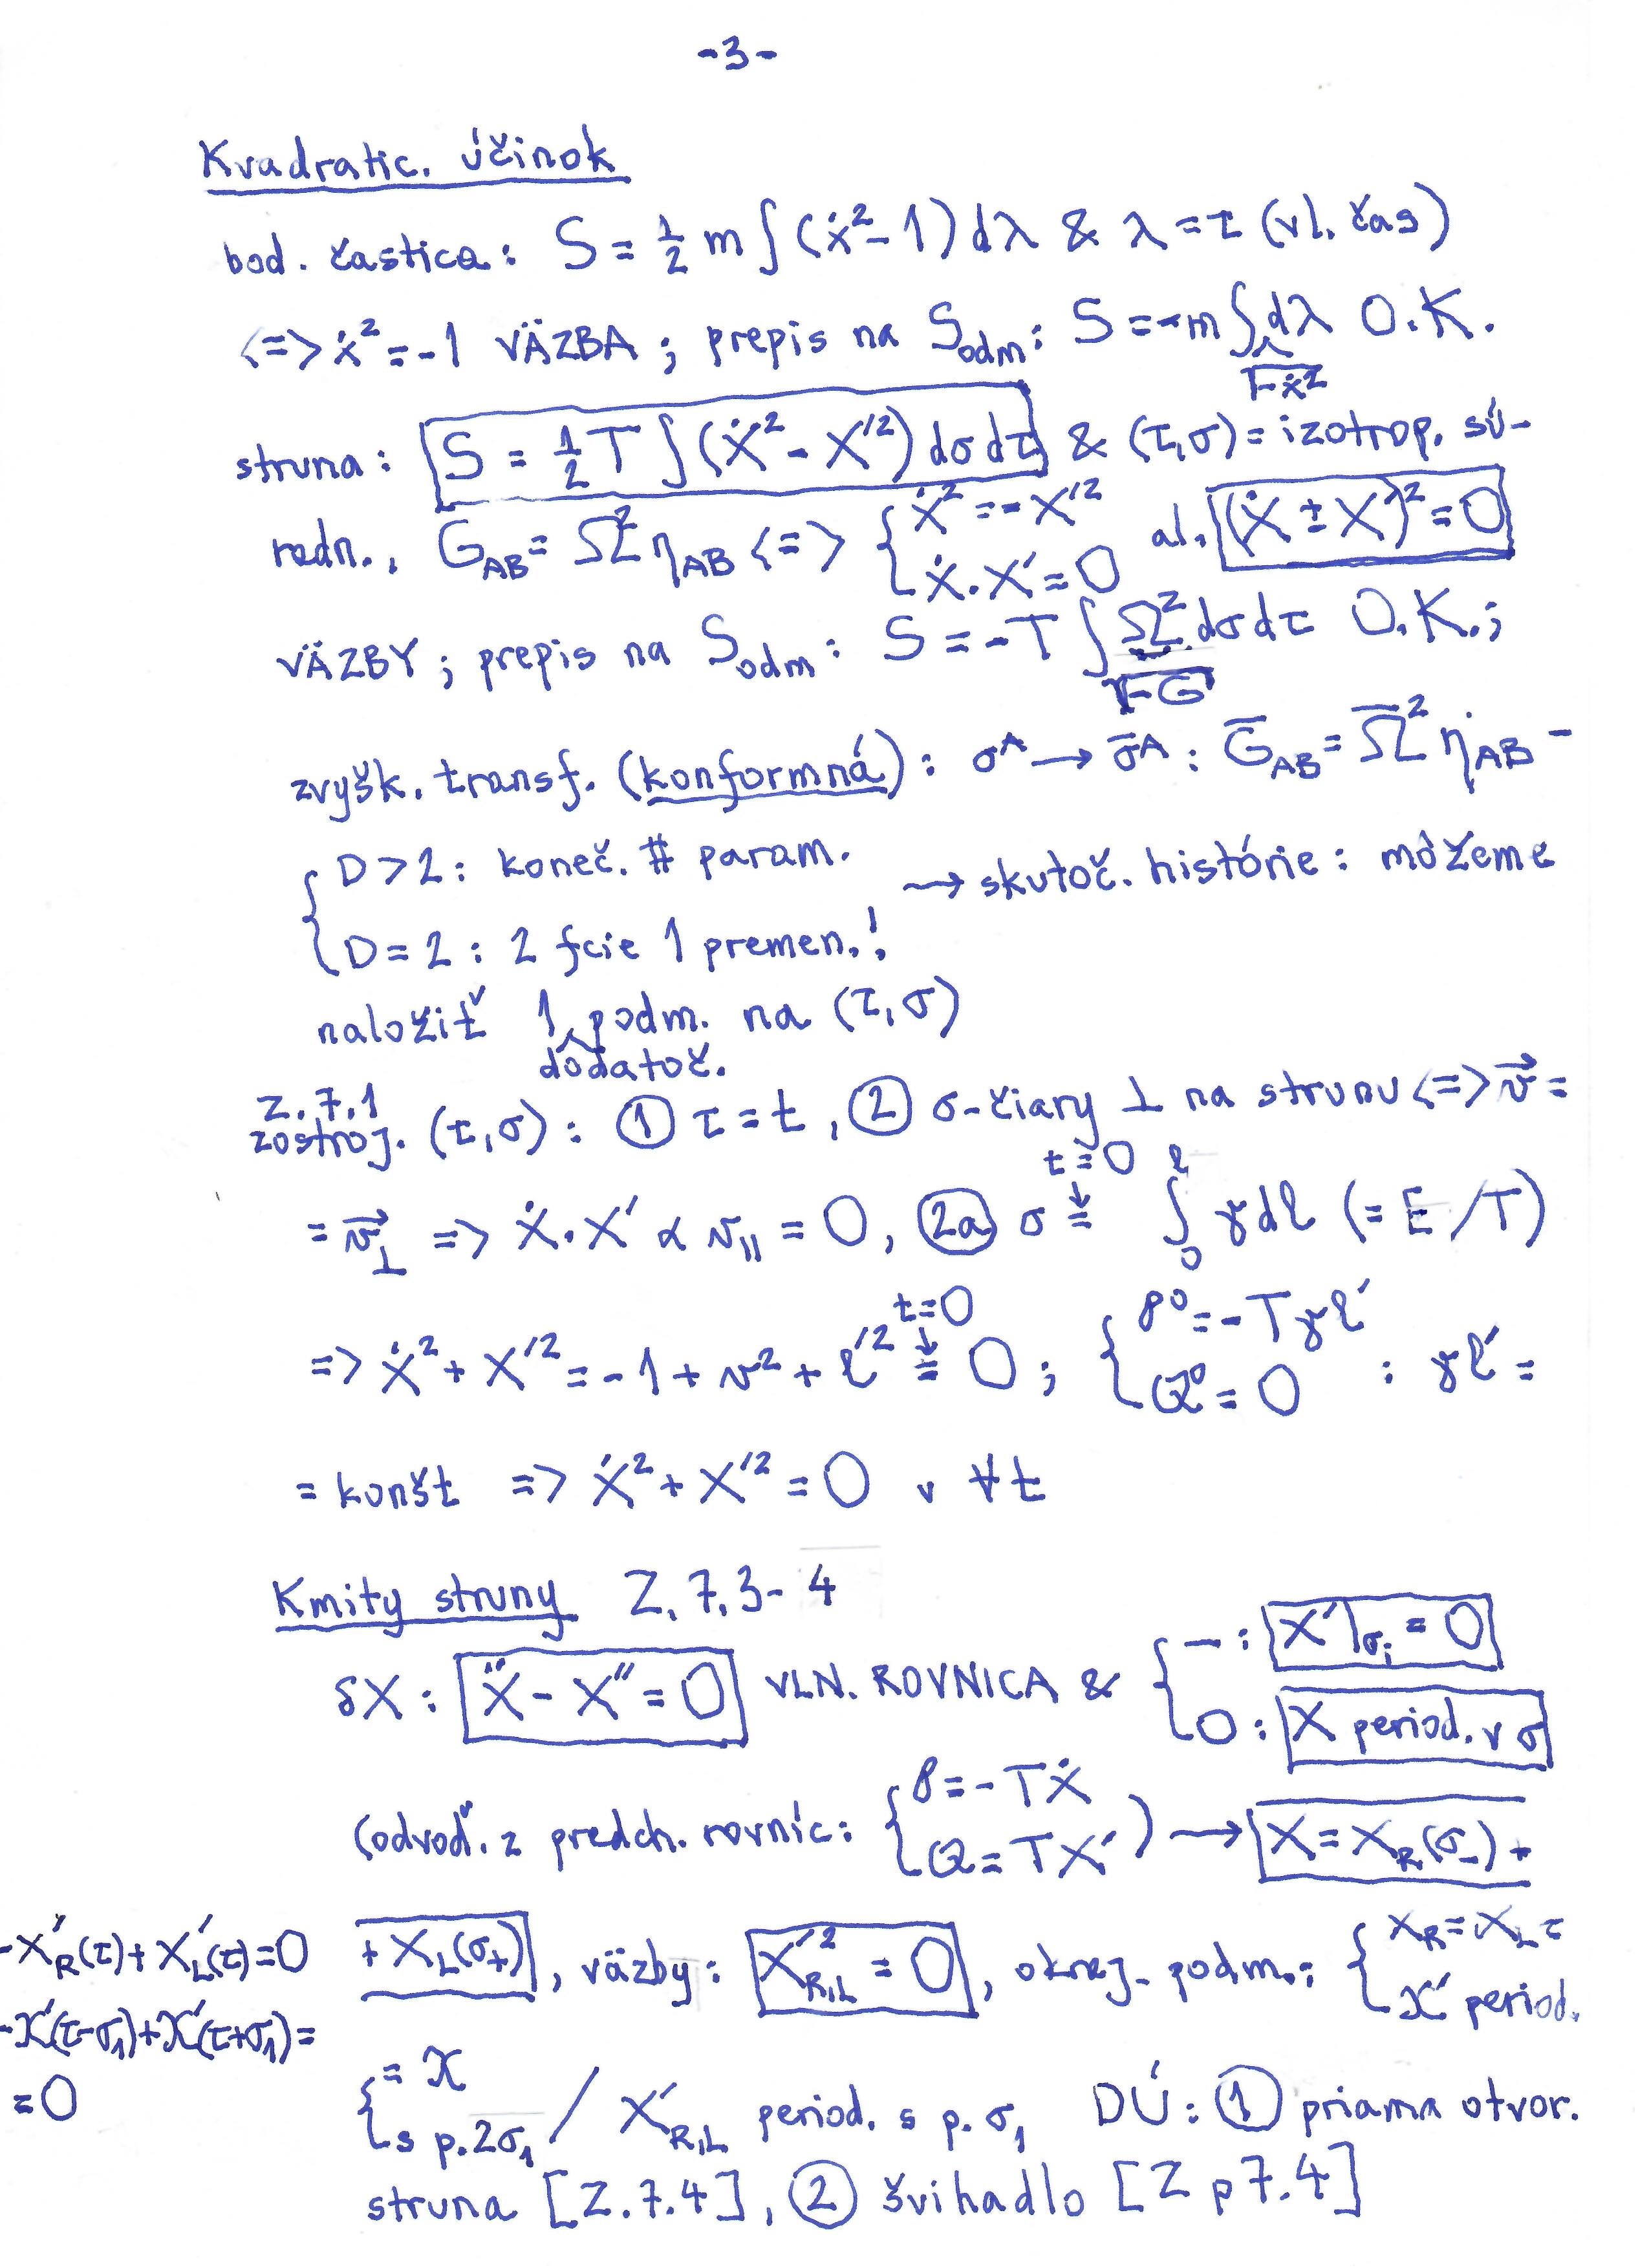 -3-
Kvadratic. účinok
bod. častica: S = ½ m ∫ (ẋ² - 1) dλ & λ = τ (vl. čas)
<=> ẋ² = -1 VÄZBA ; prepis na S_odm : S = -m ∫ dλ O.K.
√-ẋ²
struna : S = ½ T ∫ (Ẋ² - X'²) dσ dτ & (τ,σ) = izotrop. sú-
radn., G_AB = Ω² η_AB <=> { Ẋ² = -X'² al. (Ẋ ± X')² = 0
Ẋ . X' = 0
VÄZBY ; prepis na S_odm : S = -T ∫ Ω² dσ dτ O.K.;
√-G
zvyšk. transf. (konformná) : σ^A → σ̄^A : Ḡ_AB = Ω̄² η_AB -
{ D > 2 : koneč. # param.
→ skutoč. histórie : môžeme
D = 2 : 2 fcie 1 premen.!
naložiť 1 podm. na (τ,σ)
dodatoč.
Z.7.1
zostroj. (τ,σ) : ① τ = t , ② σ-čiary ⊥ na strunu <=> v⃗ =
= v⃗_⊥ => Ẋ . X' ∝ v_|| = 0 , (2a) σ = (t=0 ↓) ∫₀^ℓ γ dℓ (= E/T)
=> Ẋ² + X'² = -1 + v² + ℓ'² = (t=0 ↓) 0 ; { P⁰ = -Tγℓ' : γℓ' =
Q⁰ = 0
= konšt => Ẋ² + X'² = 0 v ∀t
Kmity struny Z.7.3-4
δX : Ẍ - X'' = 0 VLN. ROVNICA & { — : X'|σᵢ = 0
O : X period. v σ
(odvoď. z predch. rovníc : { P = -TẊ ) → X = X_R(σ₋) +
Q = TX'
-X'_R(τ) + X'_L(τ) = 0
-X'(τ-σ₁) + X'(τ+σ₁) =
= 0
+ X_L(σ₊) , väzby : X'²_R,L = 0 , okraj. podm. : { X_R = X_L =
X' period.
{ = X
s p. 2σ₁ / X'_R,L period. s p. σ₁ DÚ : ① priama otvor.
struna [Z.7.4] , ② švihadlo [Z p7.4]